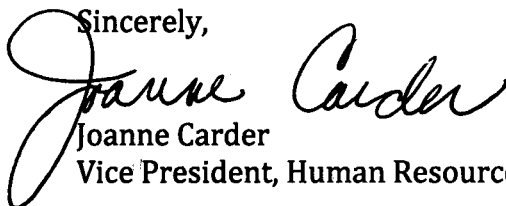 Sincerely,
Joanne Carder
Joanne Carder
Vice President, Human Resource